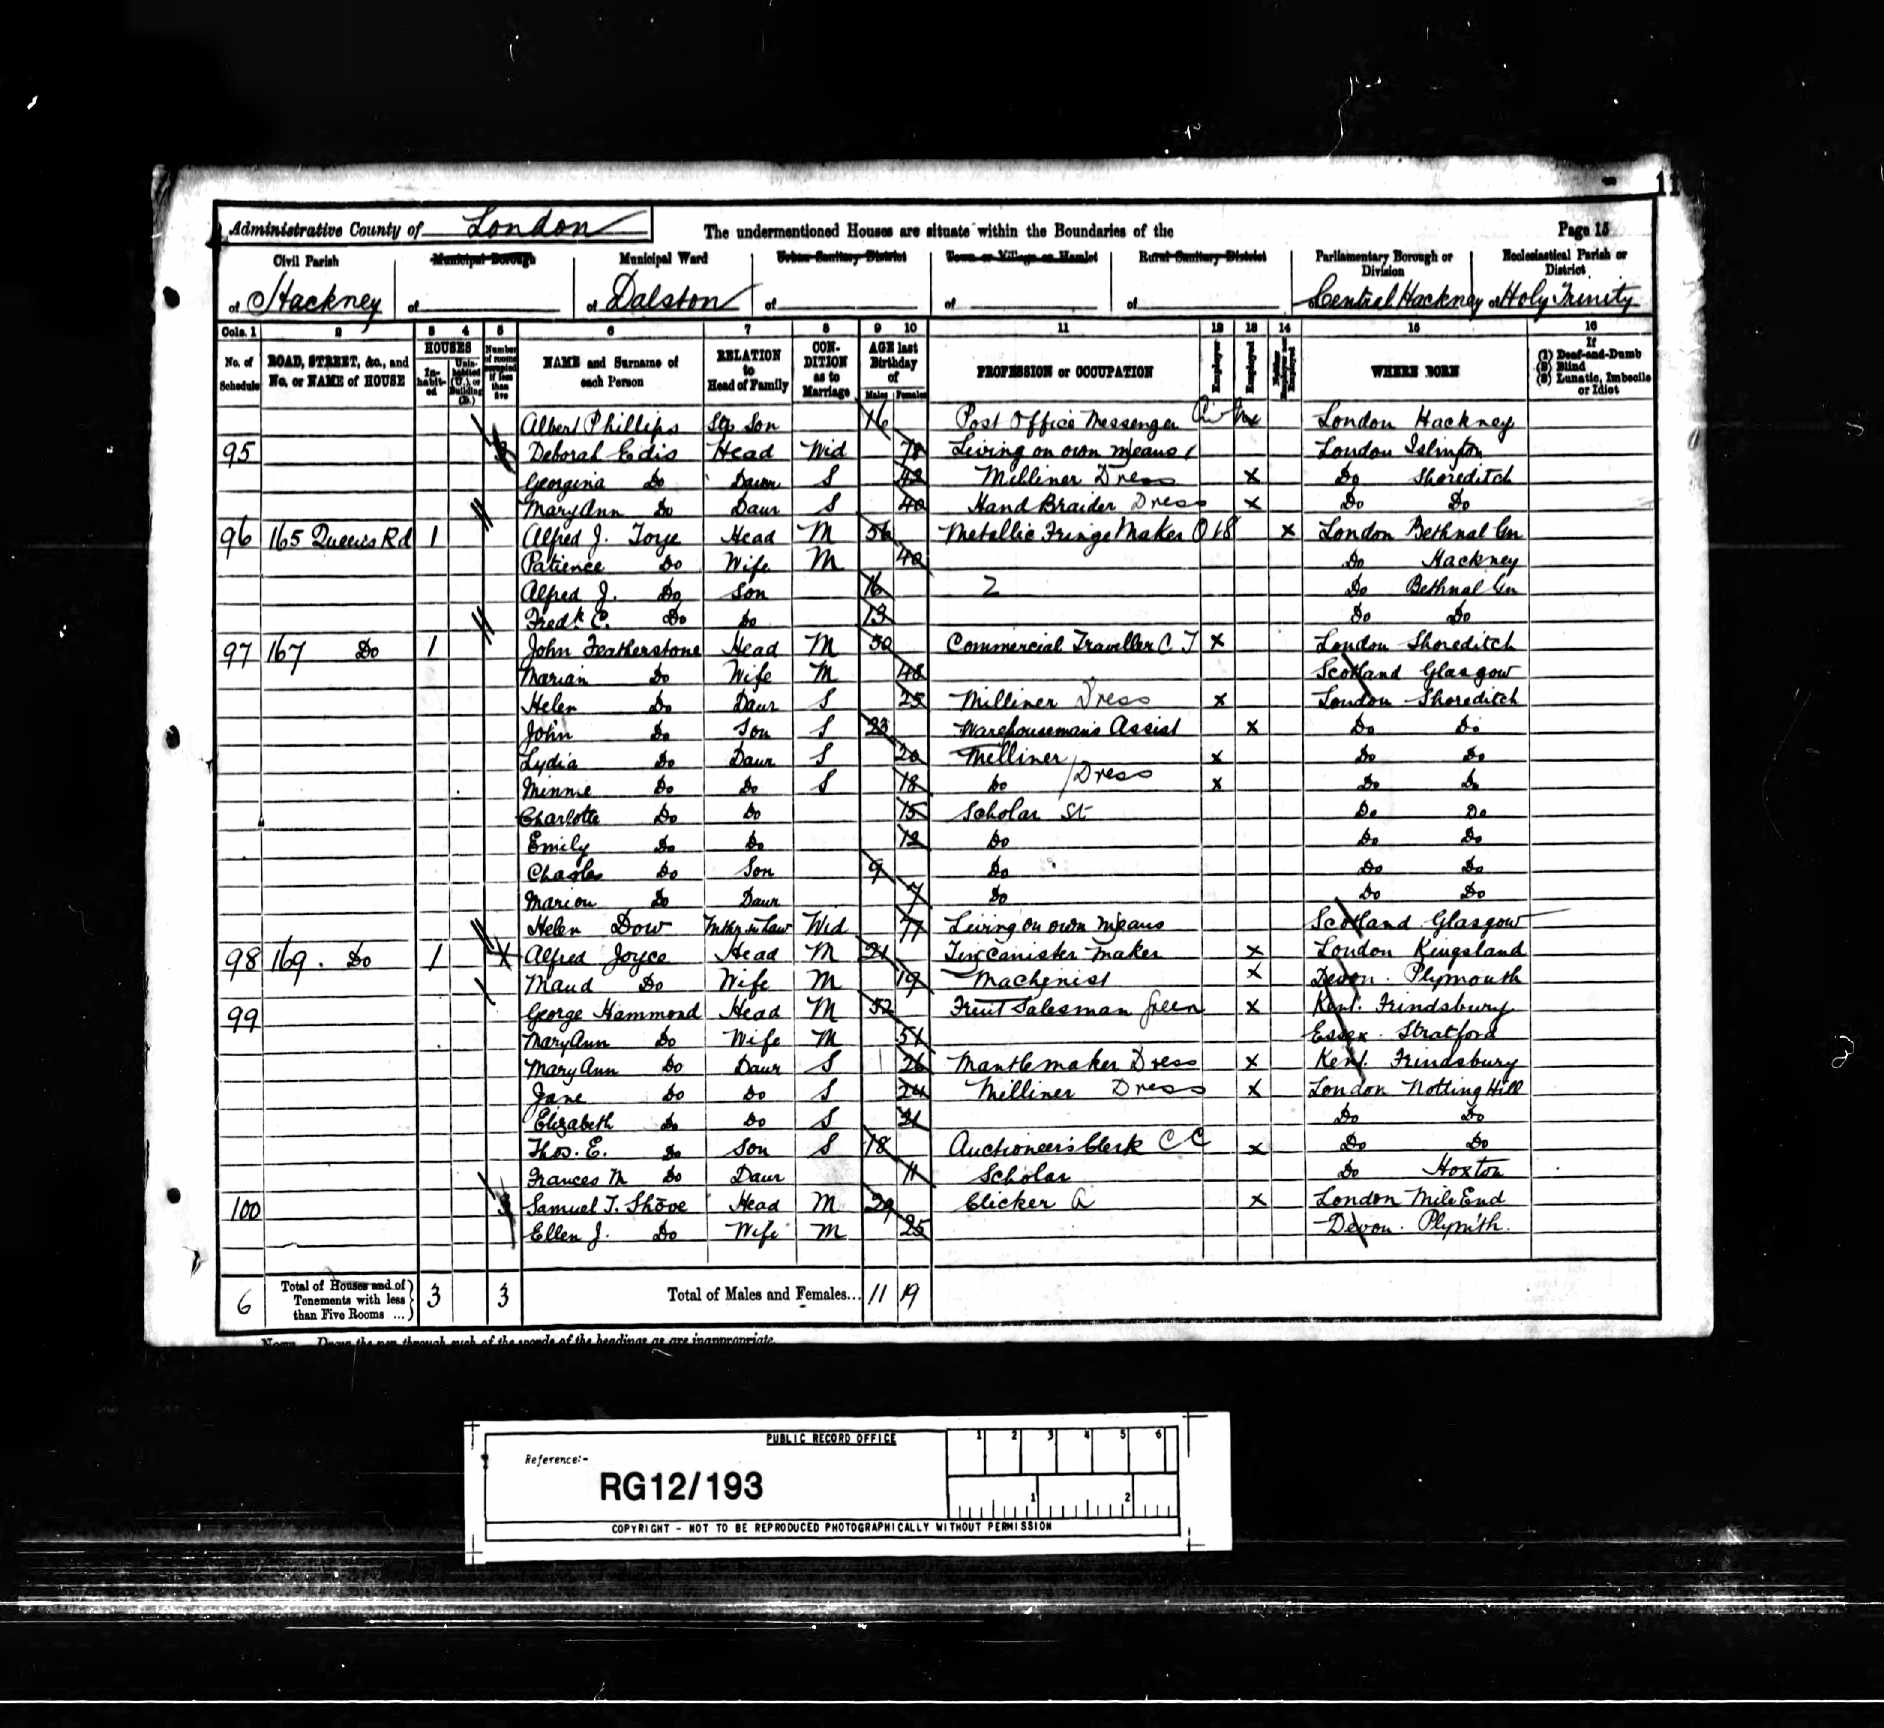 Administrative County of London
The undermentioned Houses are situate within the Boundaries of the
Page 15
Civil Parish
of Hackney
Municipal Borough
of
Municipal Ward
of Dalston
Urban Sanitary District
of
Town or Village or Hamlet
of
Rural Sanitary District
of
Parliamentary Borough or Division
of Central Hackney
Ecclesiastical Parish or District
of Holy Trinity
Cols. 1 2 3 4 5 6 7 8 9 10 11 12 13 14 15 16
No. of Schedule
ROAD, STREET, &c., and No. or NAME of HOUSE
HOUSES
In-habit-ed
Unin-habited (U.) or Building (B.)
Number of rooms occupied if less than five
NAME and Surname of each Person
RELATION to Head of Family
CON-DITION as to Marriage
AGE last Birthday of
Males Females
PROFESSION or OCCUPATION
Employer
Employed
Neither Employer nor Employed
WHERE BORN
If
(1) Deaf-and-Dumb
(2) Blind
(3) Lunatic, Imbecile or Idiot
Albert Phillips Step Son 16 Post Office Messenger x London Hackney
95 Deborah Edis Head Wid 78 Living on own means London Islington
Georgina Do Daur S 42 Milliner Dress x Do Shoreditch
Mary Ann Do Daur S 40 Hand Braider Dress x Do Do
96 165 Queens Rd 1 Alfred J. Head M 56 Metallic Fringe Maker x London Bethnal Gn
Patience Do Wife M 40 Do Hackney
Alfred J. Do Son 16 Do Bethnal Gn
Fredk. C. Do Do 13 Do Do
97 167 Do 1 John Featherstone Head M 50 Commercial Traveller C T x London Shoreditch
Marian Do Wife M 48 Scotland Glasgow
Helen Do Daur S 25 Milliner Dress x London Shoreditch
John Do Son S 23 Warehousemans Assist x Do Do
Lydia Do Daur S 20 Milliner x Do Do
Minnie Do Do S 18 Do Dress x Do Do
Charlotte Do Do 15 Scholar St Do Do
Emily Do Do 12 Do Do Do
Charles Do Son 9 Do Do Do
Marion Do Daur 7 Do Do Do
Helen Dow Mthr in Law Wid 77 Living on own means Scotland Glasgow
98 169 Do 1 4 Alfred Joyce Head M 21 Tin Canister Maker x London Kingsland
Maud Do Wife M 19 Machinist x Devon Plymouth
99 George Hammond Head M 52 Fruit Salesman Green x Kent Frindsbury
Mary Ann Do Wife M 51 Essex Stratford
Mary Ann Do Daur S 26 Mantle maker Dress x Kent Frindsbury
Jane Do Do S 24 Milliner Dress x London Notting Hill
Elizabeth Do Do S 21 Do Do
Thos. E. Do Son S 18 Auctioneer's Clerk C C x Do Do
Frances M Do Daur 11 Scholar Do Hoxton
100 3 Samuel T. Shove Head M 29 Clicker x London Mile End
Ellen J. Do Wife M 25 Devon Plym'th
6 Total of Houses and of Tenements with less than Five Rooms ... 3 3 Total of Males and Females... 11 19
NOTE.—Draw the pen through such of the words of the headings as are inappropriate.
PUBLIC RECORD OFFICE
Reference:-
RG12/193
1 2 3 4 5 6
1 2
COPYRIGHT - NOT TO BE REPRODUCED PHOTOGRAPHICALLY WITHOUT PERMISSION